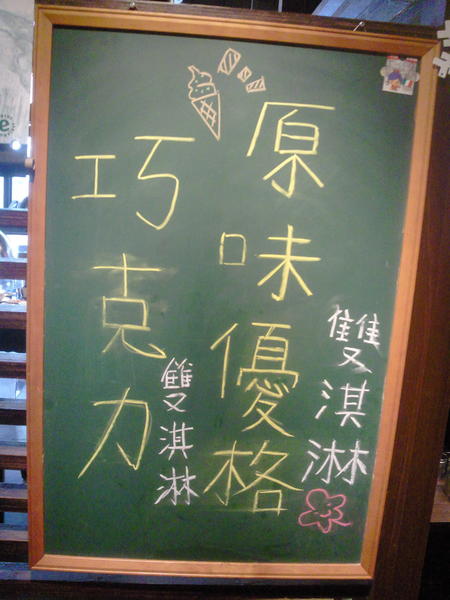 原味優格
雙淇淋
巧克力
雙淇淋